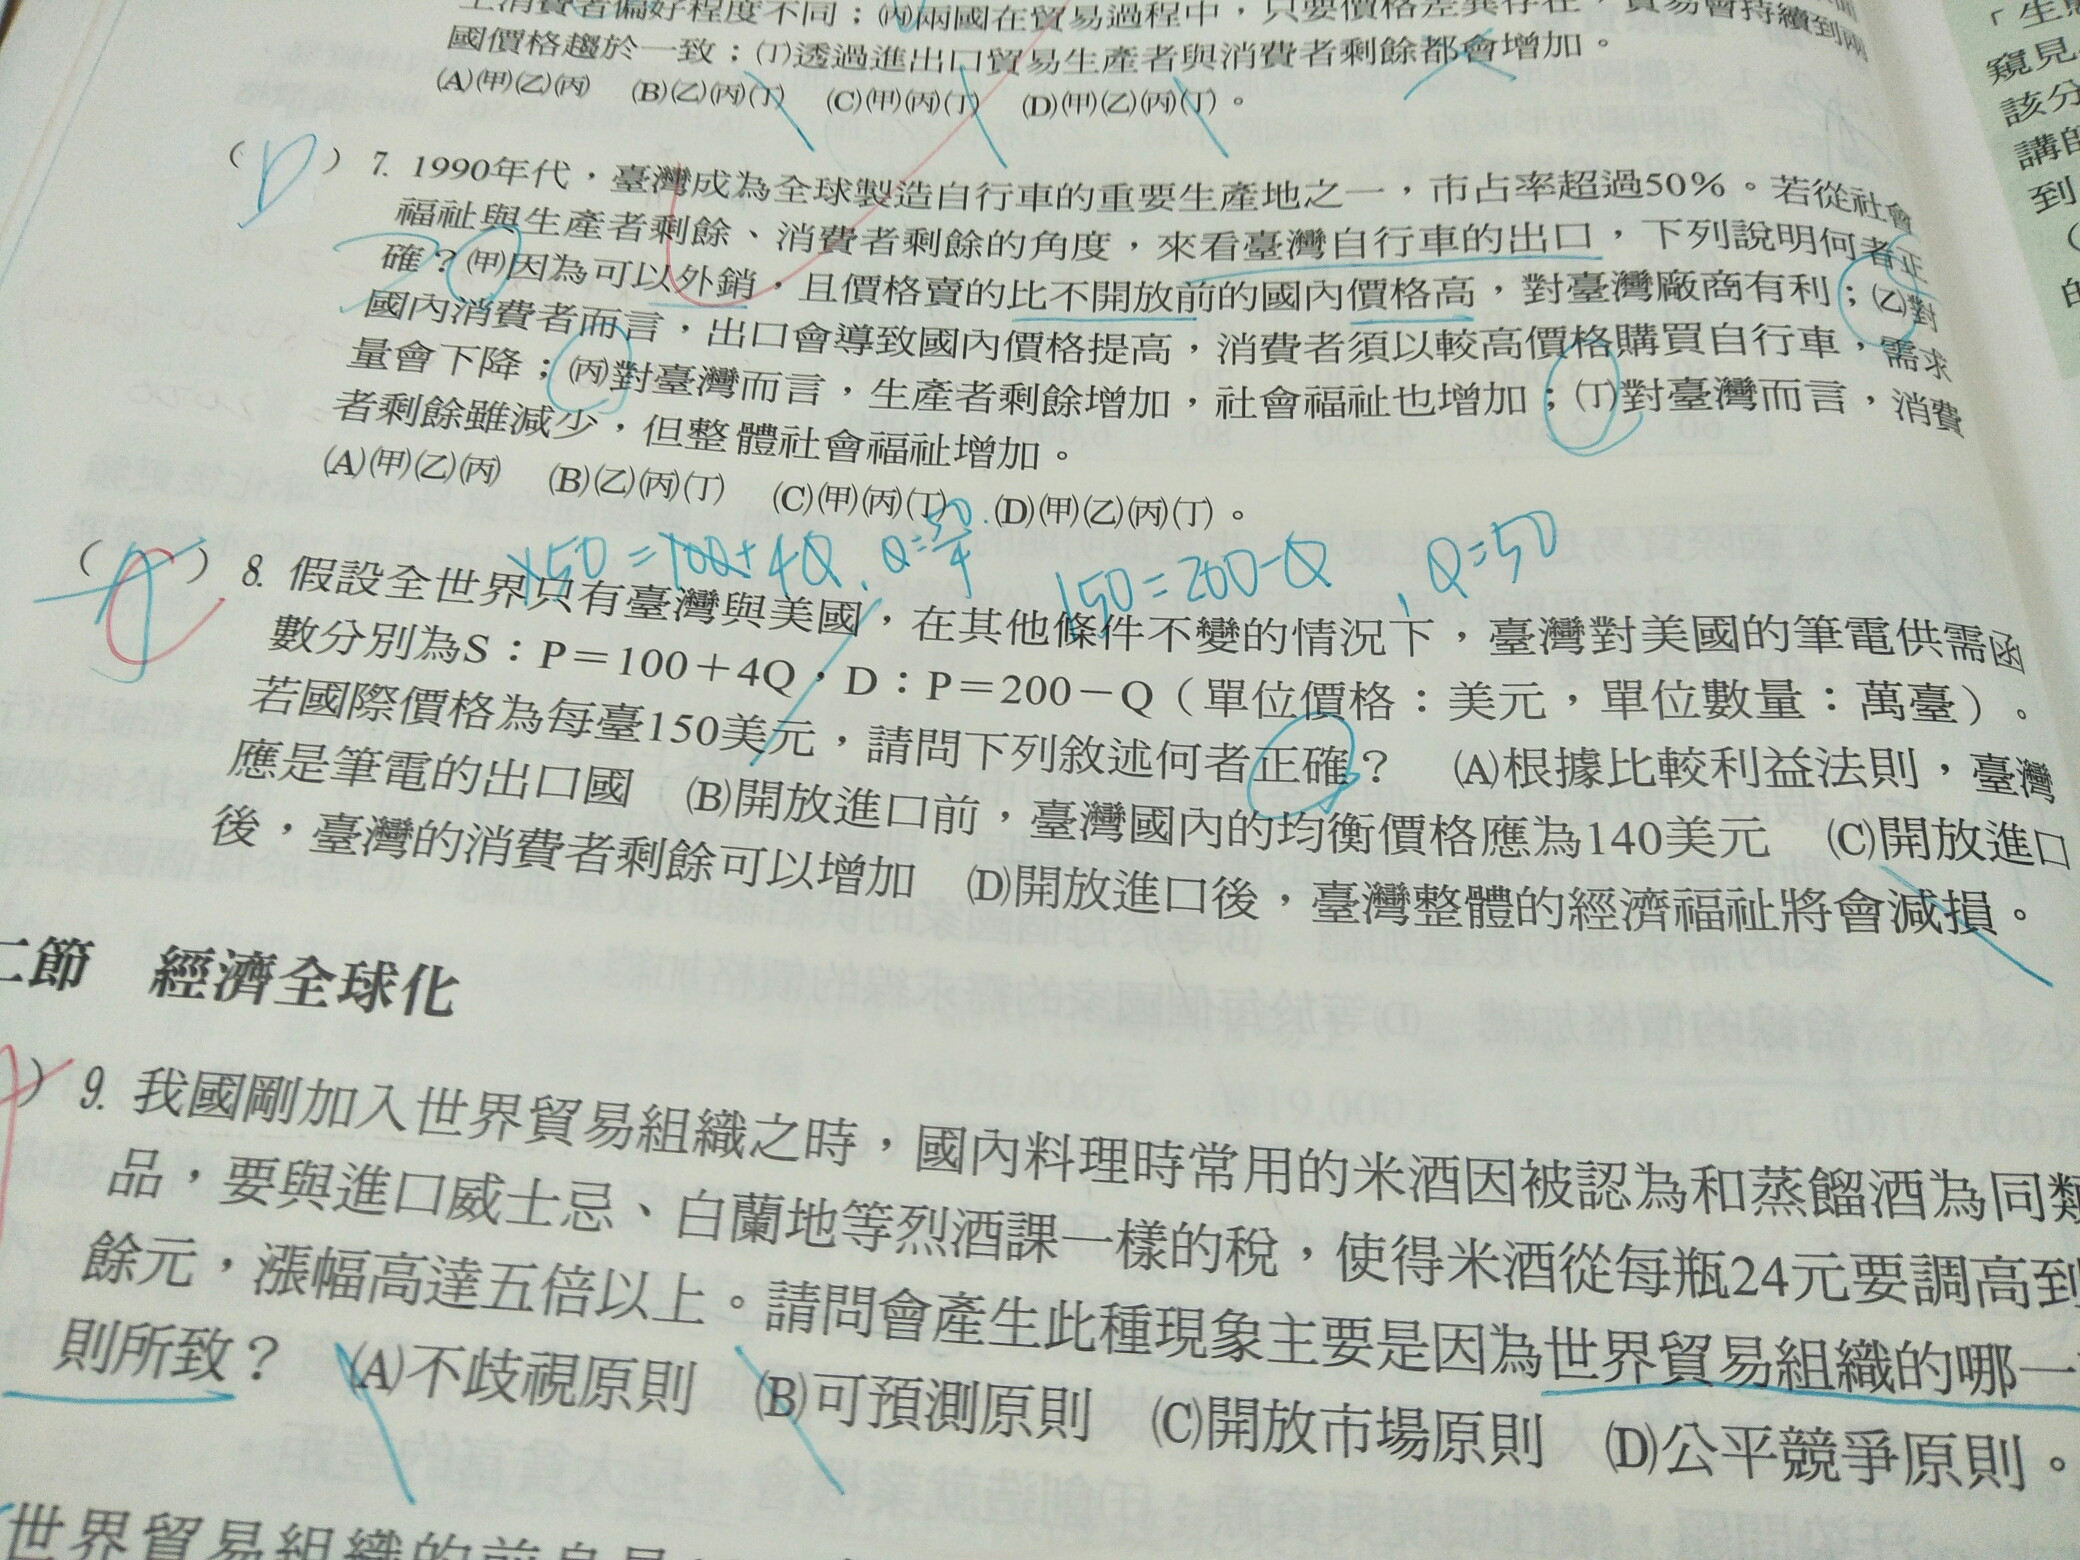 消費者偏好程度不同；㈛兩國在貿易過程中，只要價格差異存在，貿易會持續到兩
國價格趨於一致；(丁)透過進出口貿易生產者與消費者剩餘都會增加。
(A)(甲)(乙)(丙) (B)(乙)(丙)(丁) (C)(甲)(丙)(丁) (D)(甲)(乙)(丙)(丁)。
( D ) 7. 1990年代，臺灣成為全球製造自行車的重要生產地之一，市占率超過50%。若從社會
福祉與生產者剩餘、消費者剩餘的角度，來看臺灣自行車的出口，下列說明何者正
確？(甲)因為可以外銷，且價格賣的比不開放前的國內價格高，對臺灣廠商有利；(乙)對
國內消費者而言，出口會導致國內價格提高，消費者須以較高價格購買自行車，需求
量會下降；(丙)對臺灣而言，生產者剩餘增加，社會福祉也增加；(丁)對臺灣而言，消費
者剩餘雖減少，但整體社會福祉增加。
(A)(甲)(乙)(丙) (B)(乙)(丙)(丁) (C)(甲)(丙)(丁) (D)(甲)(乙)(丙)(丁)。
150=100+4Q, Q=50/4 150=200-Q, Q=50
( C ) 8. 假設全世界只有臺灣與美國，在其他條件不變的情況下，臺灣對美國的筆電供需函
數分別為S：P＝100＋4Q，D：P＝200－Q（單位價格：美元，單位數量：萬臺）。
若國際價格為每臺150美元，請問下列敘述何者正確？ (A)根據比較利益法則，臺灣
應是筆電的出口國 (B)開放進口前，臺灣國內的均衡價格應為140美元 (C)開放進口
後，臺灣的消費者剩餘可以增加 (D)開放進口後，臺灣整體的經濟福祉將會減損。
二節 經濟全球化
) 9. 我國剛加入世界貿易組織之時，國內料理時常用的米酒因被認為和蒸餾酒為同類
品，要與進口威士忌、白蘭地等烈酒課一樣的稅，使得米酒從每瓶24元要調高到
餘元，漲幅高達五倍以上。請問會產生此種現象主要是因為世界貿易組織的哪一
則所致？ (A)不歧視原則 (B)可預測原則 (C)開放市場原則 (D)公平競爭原則。
世界貿易組織的前身是
「生態
窺見
該分
講師
到
(
的